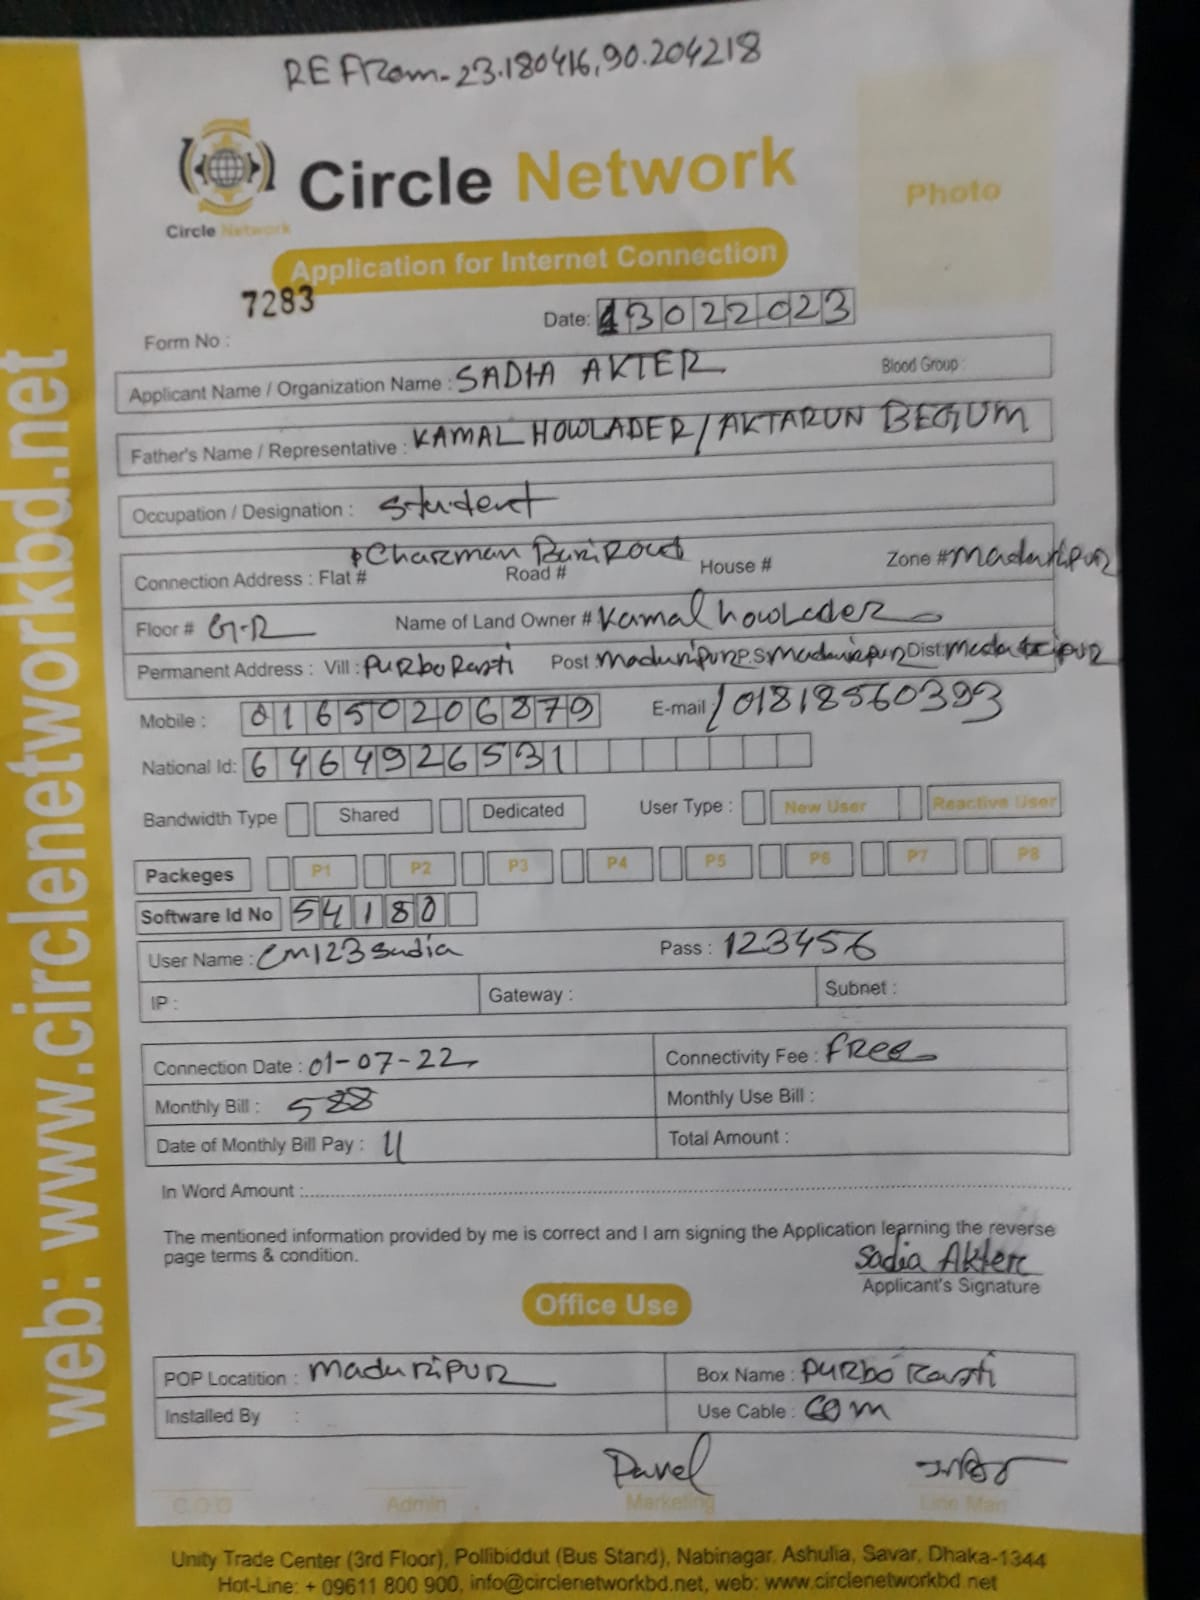 REFrom-23.180416,90.204218
Circle Network
Circle Network
Photo
Application for Internet Connection
7283
Form No :
Date: 13022023
Applicant Name / Organization Name : SADIA AKTER Blood Group :
Father's Name / Representative : KAMAL HOWLADER / AKTARUN BEGUM
Occupation / Designation : Student
Connection Address : Flat # Charman Bari Road Road # House # Zone # Maduripur
Floor # G-R Name of Land Owner # Kamal howLader
Permanent Address : Vill : PURbo Rasti Post Maduripur P.S Maduripur Dist: Maduripur
Mobile : 01650206879 E-mail / 01818560393
National Id: 6464926531
Bandwidth Type Shared Dedicated User Type : New User Reactive User
Packeges P1 P2 P3 P4 P5 P6 P7 P8
Software Id No 54180
User Name : cm123sadia Pass : 123456
IP : Gateway : Subnet :
Connection Date : 01-07-22 Connectivity Fee : FRee
Monthly Bill : 588 Monthly Use Bill :
Date of Monthly Bill Pay : Total Amount :
In Word Amount :
The mentioned information provided by me is correct and I am signing the Application learning the reverse
page terms & condition.
Sadia Akter
Applicant's Signature
Office Use
POP Locatition : Maduripur Box Name : PURbo Rasti
Installed By : Use Cable : 60m
Pavel
C.O.O Admin Marketing Line Man
Unity Trade Center (3rd Floor), Pollibiddut (Bus Stand), Nabinagar, Ashulia, Savar, Dhaka-1344
Hot-Line: + 09611 800 900, info@circlenetworkbd.net, web: www.circlenetworkbd.net
web: www.circlenetworkbd.net